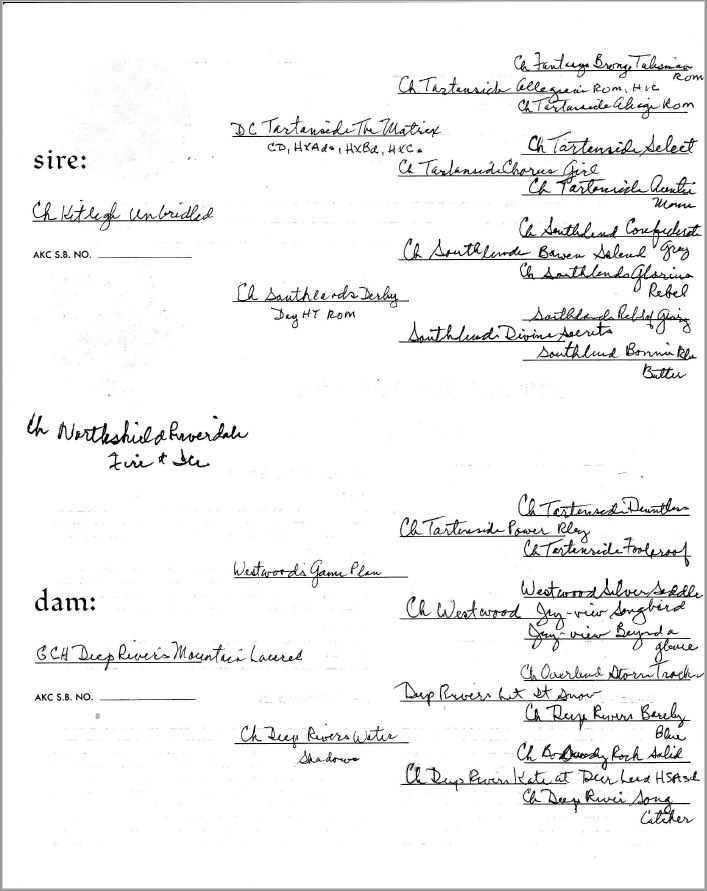 Ch Fantasys Bronze Talisman
ROM
Ch Tartanside Allegiance ROM, HIC
Ch Tartanside Alicia Rom
DC Tartanside The Matrix
CD, HXAds, HXBd, HXCs
Ch Tartanside Select
sire:
Ch Tartanside Chorus Girl
Ch Tartanside Auntie
Mame
Ch Kitleigh Unbridled
Ch Southland Confederate
Gray
Ch Southlands Saland
AKC S.B. NO.
Ch Southlands Glorius
Rebel
Ch Southlands Derby
Day HT ROM
Southlands Rebl of Glory
Southlands Divine Secrets
Southland Bonnie Blu
Butler
Ch Northshield Riverdale
Fire & Ice
Ch Tartanside Dauntless
Ch Tartanside Power Play
Ch Tartanside Foolproof
Westwoods Game Plan
Westwood Silver Saddle
dam:
Ch Westwood Jay-view Songbird
Jay-view Beyond a
glance
GCH Deep River's Mountain Laurel
Ch Overland Storm Track
AKC S.B. NO.
Deep Rivers Let It Snow
Ch Deep Rivers Barely
Blue
Ch Deep Rivers Water
Shadows
Ch Rock Solid
Ch Deep Rivers Kate at Deer Lead HSAsd
Ch Deep River Song
Catcher